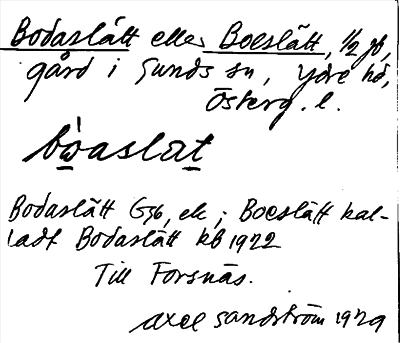 Bodaslätt eller Boeslätt, 1/2 jb,
gård i Sunds sn, Ydre hd,
Österg. l.
bòaslæt
Bodaslätt G36, ek; Boeslätt kal-
ladt Bodaslätt kb 1922
Till Forsnäs.
Axel Sandström 1929